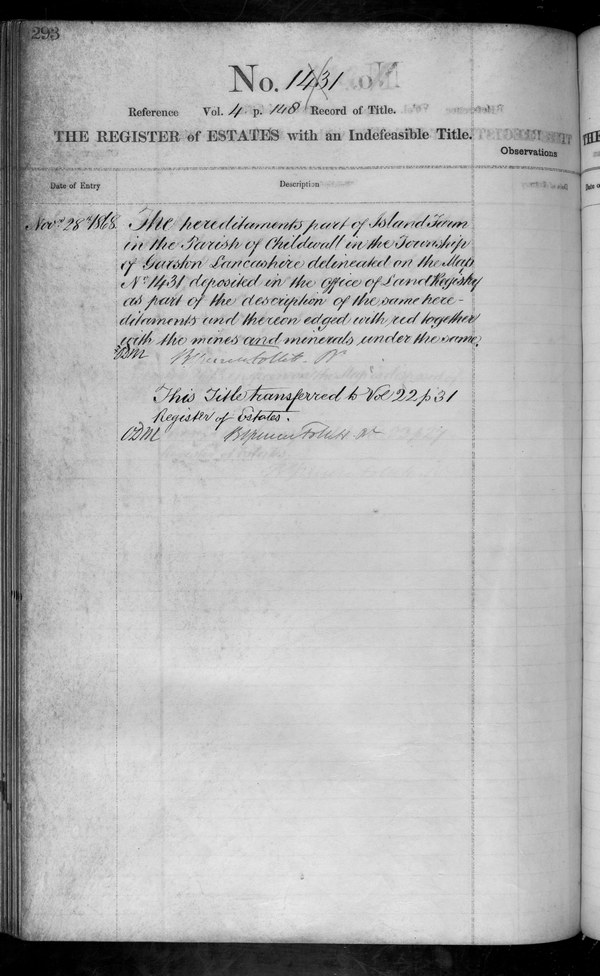 293
No. 1431
Reference Vol. 4 p. 148 Record of Title.
THE REGISTER of ESTATES with an Indefeasible Title.
Observations
Date of Entry
Description
Novr 28th 1868
The hereditaments part of Island Town
in the Parish of Childwall in the Township
of Garston Lancashire delineated on the Map
No 1431 deposited in the office of Land Registry
as part of the description of the same here-
ditaments and thereon edged with red together
with the mines and minerals under the same.
Follett
This Title transferred to Vol 22 p 31
Register of Estates.
Follett
THE
Date o